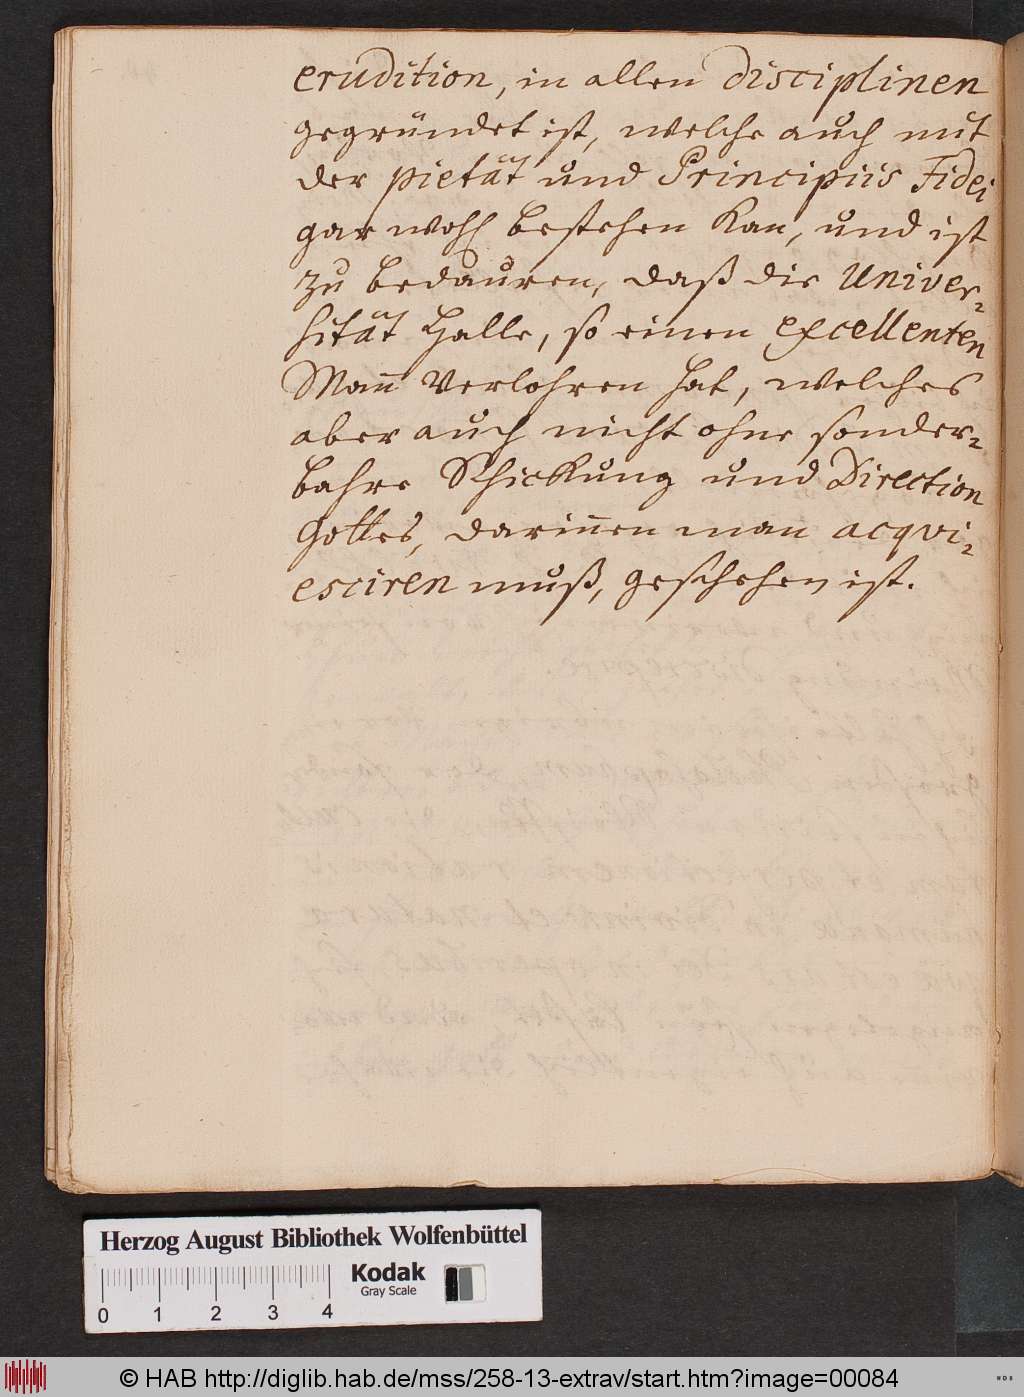 erudition, in allen disciplinen
gegründet ist, welche auch mit
der pietät und Principiis Fidei
gar wohl bestehen kan, und ist
zu bedauren, daß die Univer-
sität Halle, so einen excellenten
Mann verlohren hat, welches
aber auch nicht ohne sonder-
bahre Schickung und Direction
Gottes, darinnen man acqvi-
esciren muß, geschehen ist.
Herzog August Bibliothek Wolfenbüttel
Kodak
Gray Scale
0 1 2 3 4
© HAB http://diglib.hab.de/mss/258-13-extrav/start.htm?image=00084